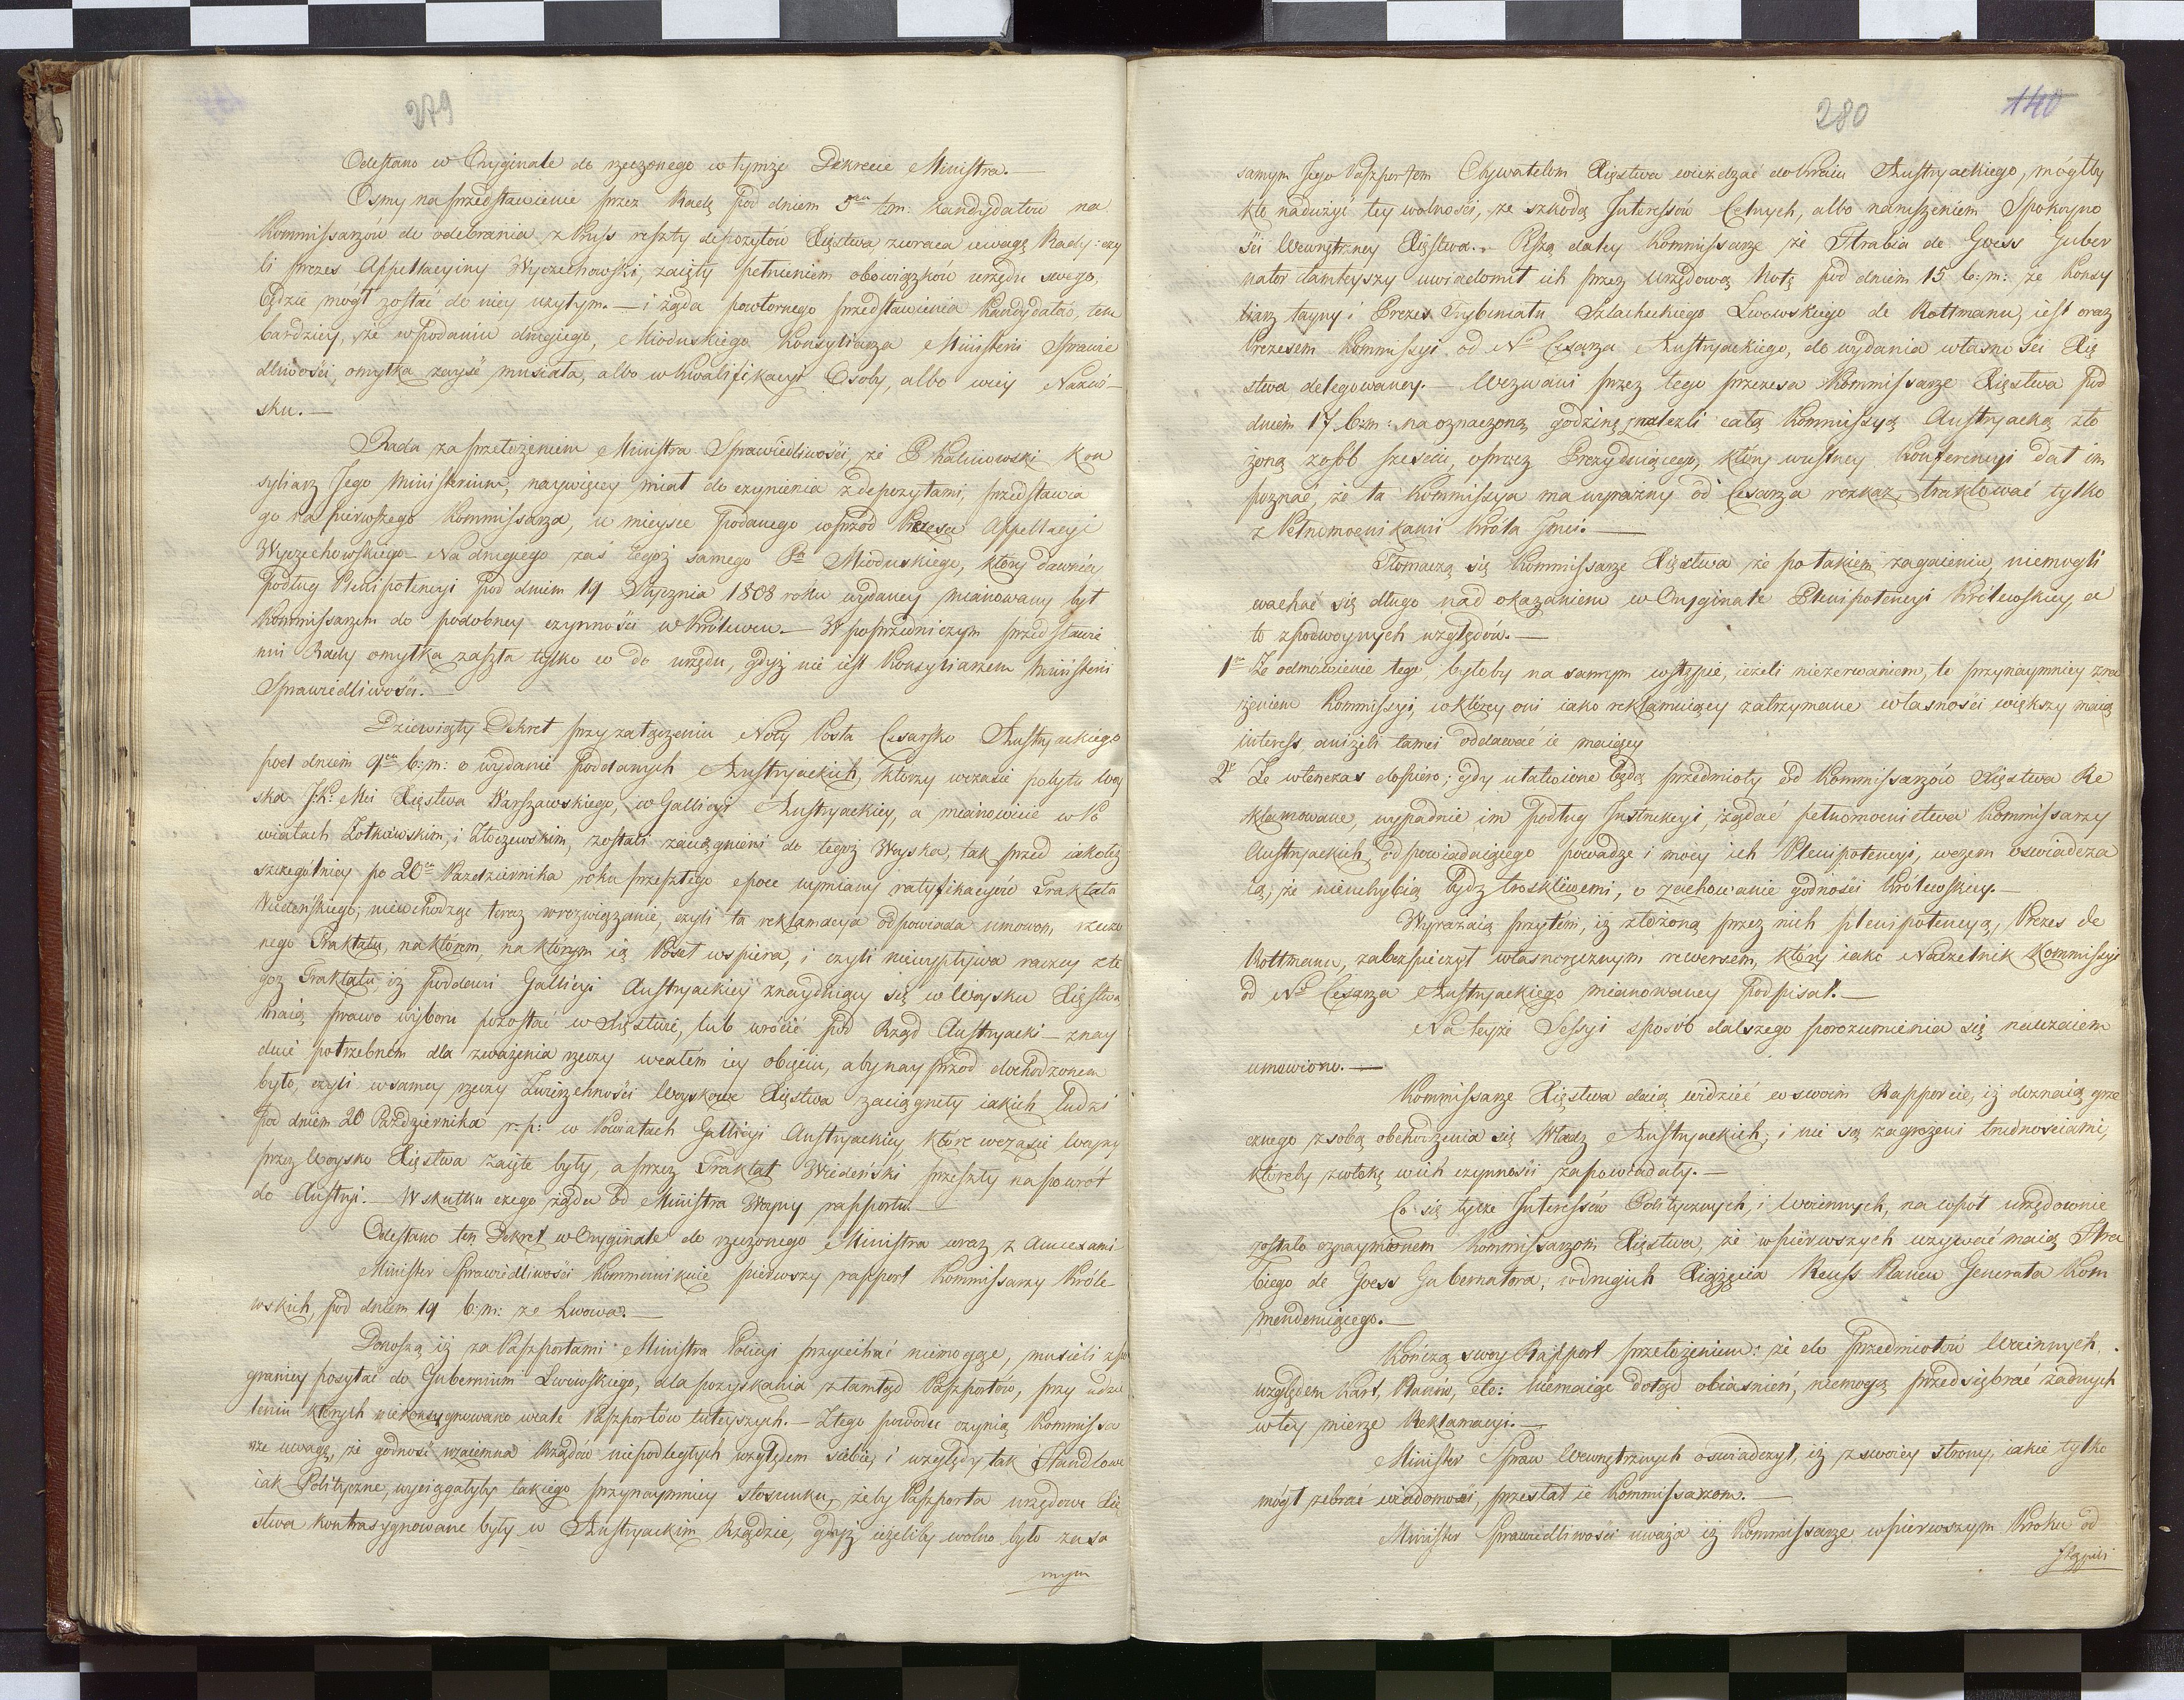 279
Odesłano w Oryginale do rzeczonego w tymże Dekrecie Ministra.—
Osmy na przedstawienie przez Radę pod dniem 5go t:m: kandydatów na
Kommissarzów do odebrania z Pruss reszty depozytów Xięstwa zwraca uwagę Rady: czy
li prezes Appellacyiny Wyczechowski, zaięty pełnieniem obowiązków urzędu swego,
będzie mógł zostać do niey użytym.— i żąda powtornego przedstawienia Kandydatów, tem
bardziey, że w podaniu drugiego, Mioduskiego Konsyliarza Ministerii Sprawie
dliwości, omyłka zayść musiała, albo w kwalifikacyi Osoby, albo w iey Nazwi-
sku.—
Rada za przełożeniem Ministra Sprawiedliwości, że P. Kalinowski Kon
syliarz Jego Ministerium, naywięcey miał do czynienia z depozytami, przedstawia
go na pierwszego Kommissarza, w mieysce podanego wprzód Prezesa Appellacyi
Wyczechowskiego— Na drugiego zaś tegoż samego Pa Mioduskiego, który dawniey
podług Plenipotencyi pod dniem 19 Stycznia 1808 roku wydaney mianowany był
Kommissarzem do podobney czynności w Królewcu.— W poprzedniczym przedstawie
niu Rady omyłka zaszła tylko co do urzędu, gdyż nie iest Konsyliarzem Ministerii
Sprawiedliwości.—
Dziewiąty Dekret przy załączeniu Noty Posła Cesarsko Austryackiego
pod dniem 9go b:m: o wydanie poddanych Austryackich, którzy w czasie pobytu Woy
ska J:K: Mci Xięstwa Warszawskiego, w Gallicyi Austryackiey, a mianowicie w Po
wiatach Żołkiewskim, i Złoczewskim, zostali zaciągnieni do tegoż Woyska, tak przed iakoteż
szczególniey po 20m Października roku przeszłego epoce wymiany ratyfikacyów Traktatu
Wiedeńskiego; niewchodząc teraz w rozwiązanie, czyli ta reklamacya odpowiada umowom rzeczo
nego Traktatu, na którem, na którym ią Poseł wspiera, i czyli niewypływa raczey z te
goż Traktatu, iż poddani Gallicyi Austryackiey znayduiący się w Woysku Xięstwa
maią prawo wyboru pozostać w Xięstwie, lub wrócić pod Rząd Austryacki— znay
duie potrzebnem dla zważenia rzeczy w całém iey obięciu, aby nayprzód dochodzonem
było, czyli w samey rzeczy Zwierzchności Woyskowe Xięstwa zaciągnęły iakich ludzi
pod dniem 20 Października r:p: w Powiatach Gallicyi Austryackiey, które w czasie Woyny
przez Woysko Xięstwa zaięte były, a przez Traktat Wiedeński przeszły na powrót
do Austryi.— W skutku czego żąda od Ministra Woyny rapportu.
Odesłano ten Dekret w Oryginale do rzeczonego Ministra wraz z Annexami
Minister Sprawiedliwości kommunikuie pierwszy rapport Kommissarzy Króle-
wskich, pod dniem 19 b:m: ze Lwowa.—
Donoszą iż za Paszportami Ministra Policyi przyiechać niemogąc, musieli z po
graniczy posyłać do Gubernium Lwowskiego, dla pozyskania z tamtąd Paszportów, przy udzie
leniu których niekonsygnowano wcale Paszportów tuteyszych.— Z tego powodu czynią Kommissa
rze uwagę, że godność wzaiemna Rządów niepodległych względem siebie, i względy tak Handlowe
iak Polityczne, wyciągałyby takiego przynaymniey stosunku, żeby Paszporta urzędowe Xię
stwa kontrasygnowane były w Austryackim Rządzie, gdyż ieżeliby wolno było za sa
mym
280
140
samym Jego Paszportem Obywatelom Xięstwa wieżdżać do kraiu Austryackiego, mógłby
kto nadużyć tey wolności, ze szkodą Interessów Celnych, albo naruszeniem Spokoyno
ści Wewnętrzney Xięstwa.. Piszą daley Kommissarze że Hrabia de Goess Guber
nator tamteyszy uwiadomił ich przez urzędową Notę pod dniem 15 b:m: że Konsy
liarz tayny i Prezes Trybunału Szlacheckiego Lwowskiego de Rottmann, iest oraz
Prezesem Kommissyi od Nº Cesarza Austryackiego, do wydania własności Xię
stwa delegowaney.— Wezwani przez tego prezesa Kommissarze Xięstwa pod
dniem 17 b:m: na oznaczoną godzinę, znaleźli całą Kommissyą Austryacką zło
żoną z osób sześciu, oprócz Prezyduiącego, który w ustney Konferencyi dał im
poznać, że ta Kommissya ma wyraźny od Cesarza rozkaz, traktować tylko
z Pełnomocnikami Króla Jmci.—
Tłomaczą się Kommissarze Xięstwa że po takiem zagaieniu, niemogli
wachać się długo nad okazaniem w Oryginale Plenipotencyi Królewskiey, a
to z podwoynych względów.—
1o Że odmówienie tego, byłoby na samym wstępie, ieżeli niezerwaniem, to przynaymniey zra
żeniem Kommissyi, w którey oni iako reklamuiący zatrzymane własności większy maią
interess, aniżeli tamci oddawać ie maiący
2o Że wtenczas dopiero; gdy ułatwione będą przedmioty od Kommissarzów Xięstwa Re
klamowane, wypadnie im podług Instrukcyi, żądać pełnomocnictwa Kommissarzy
Austryackich, odpowiadaiącego powadze i mocy ich Plenipotencyi, w czem oświadcza
ią, że nieuchybią bydź troskliwemi, o zachowanie godności Królewskiey.—
Wyrażaią przytem, iż złożoną przez nich plenipotencyą, Prezes de
Rottmann, zabezpieczył własnoręcznym rewersem, który iako Naczelnik Kommissyi
od Nº Cesarza Austryackiego mianowaney podpisał.—
Na teyże Sessyi sposób dalszego porozumienia się nawzaiem
umowiono.—
Kommissarze Xięstwa daią widzieć w swoim Rapporcie, iż doznaią grze
cznego z sobą obchodzenia się Władz Austryackich, i nie są zagrożeni trudnościami,
któreby zwłokę w ich czynności zapowiadały.—
Co się tycze Interessów Politycznych, i Woiennych, na wpół urzędownie
zostało oznaymionem Kommissarzom Xięstwa, że w pierwszych używać maią Hra
biego de Goess Gubernatora, w drugich Xiążęcia Reuss Plauen Generała Kom
menderuiącego.—
Kończą swoy Rapport przełożeniem: że do Przedmiotów Woiennych
względem Kart, Planów, etc: niemaiąc dotąd obiaśnień, niemogą przedsiębrać żadnych
w tey mierze Reklamacyi.—
Minister Spraw Wewnętrznych oświadczył, iż z swoiey strony, iakie tylko
mógł zebrać wiadomości, przesłał ie Kommissarzom.—
Minister Sprawiedliwości uważa iż Kommissarze w pierwszym Kroku od
stąpili